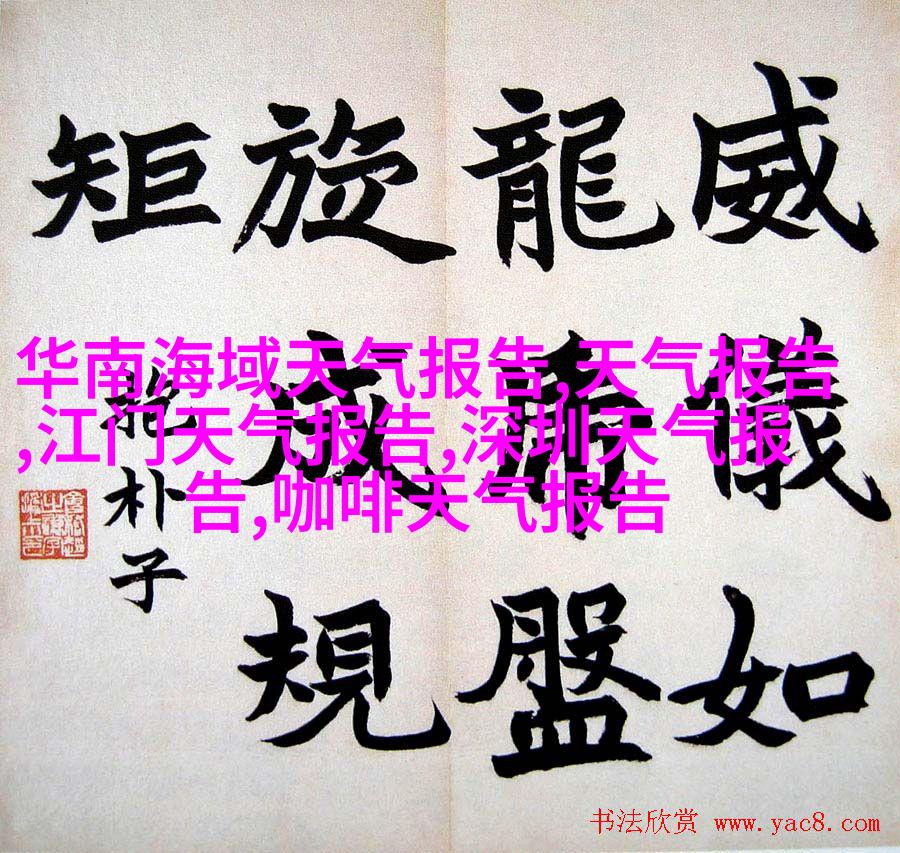 威儀如
龍盤
旋成規
矩
抱朴子
华南海域天气报告,天气报告
,江门天气报告,深圳天气报
告,咖啡天气报告
书法欣赏 www.yac8.com